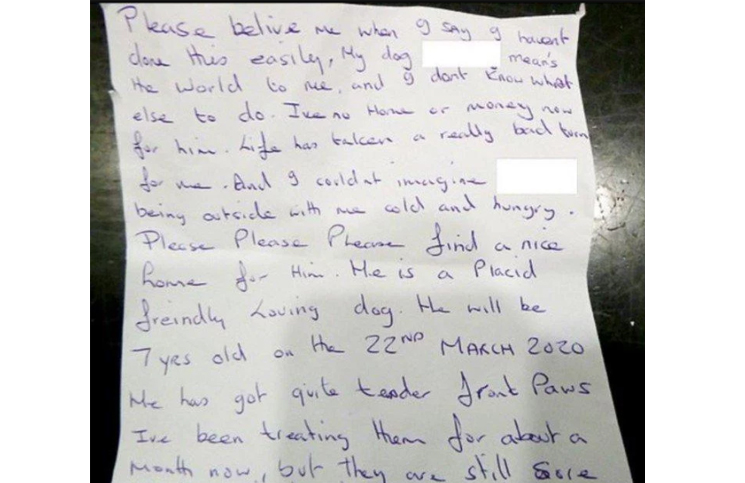 Please belive me when I say I havent
done this easily, My dog mean's
the world to me, and I dont know what
else to do. I've no Home or money now
for him. Life has taken a really bad turn
for me. And I couldnt imagine
being outside with me cold and hungry.
Please Please Please find a nice
home for Him. He is a Placid
freindly Loving dog. He will be
7 yrs old on the 22ND MARCH 2020
He has got quite tender front Paws
Ive been treating them for about a
Month now, but they are still Sore